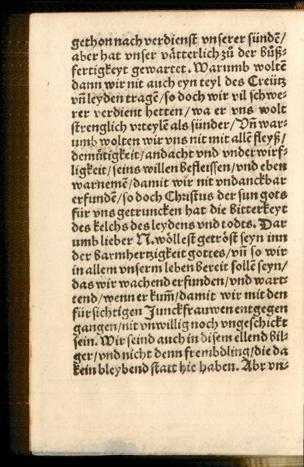 gethon nach verdienst vnserer sündẽ/
aber hat vnser vätterlich zů der bůß-
fertigkeyt gewartet. Warumb woltẽ
dann wir nit auch eyn teyl des Creütz
vñ leyden tragẽ/ so doch wir vil schwe-
rer verdient hetten/ wa er vns wolt
strenglich vrteylẽ als sünder/ Vñ war-
umb wolten wir vns nit mit allẽ fleyß/
demůtigkeit/ andacht vnd vnderwirf-
ligkeit/ seins willen befleissen/ vnd eben
warnemẽ/ damit wir nit vndanckbar
erfundẽ/ so doch Christus der sun gots
für vns getruncken hat die bitterkeyt
des kelchs des leydens vnd todts. Dar
umb lieber N. wöllest getröst seyn inn
der barmhertzigkeit gottes/ vñ so wir
in allem vnserm leben bereit sollẽ seyn/
das wir wachend erfunden/ vnd wart-
tend/ wenn er kum̃/ damit wir mit den
fürsichtigen Junckfrauwen entgegen
gangen/ nit vnwillig noch vngeschickt
sein. Wir seind auch in disem ellend bil-
ger/ vnd nicht denn frembdling/ die da
kein bleybend statt hie haben. Abr vn-